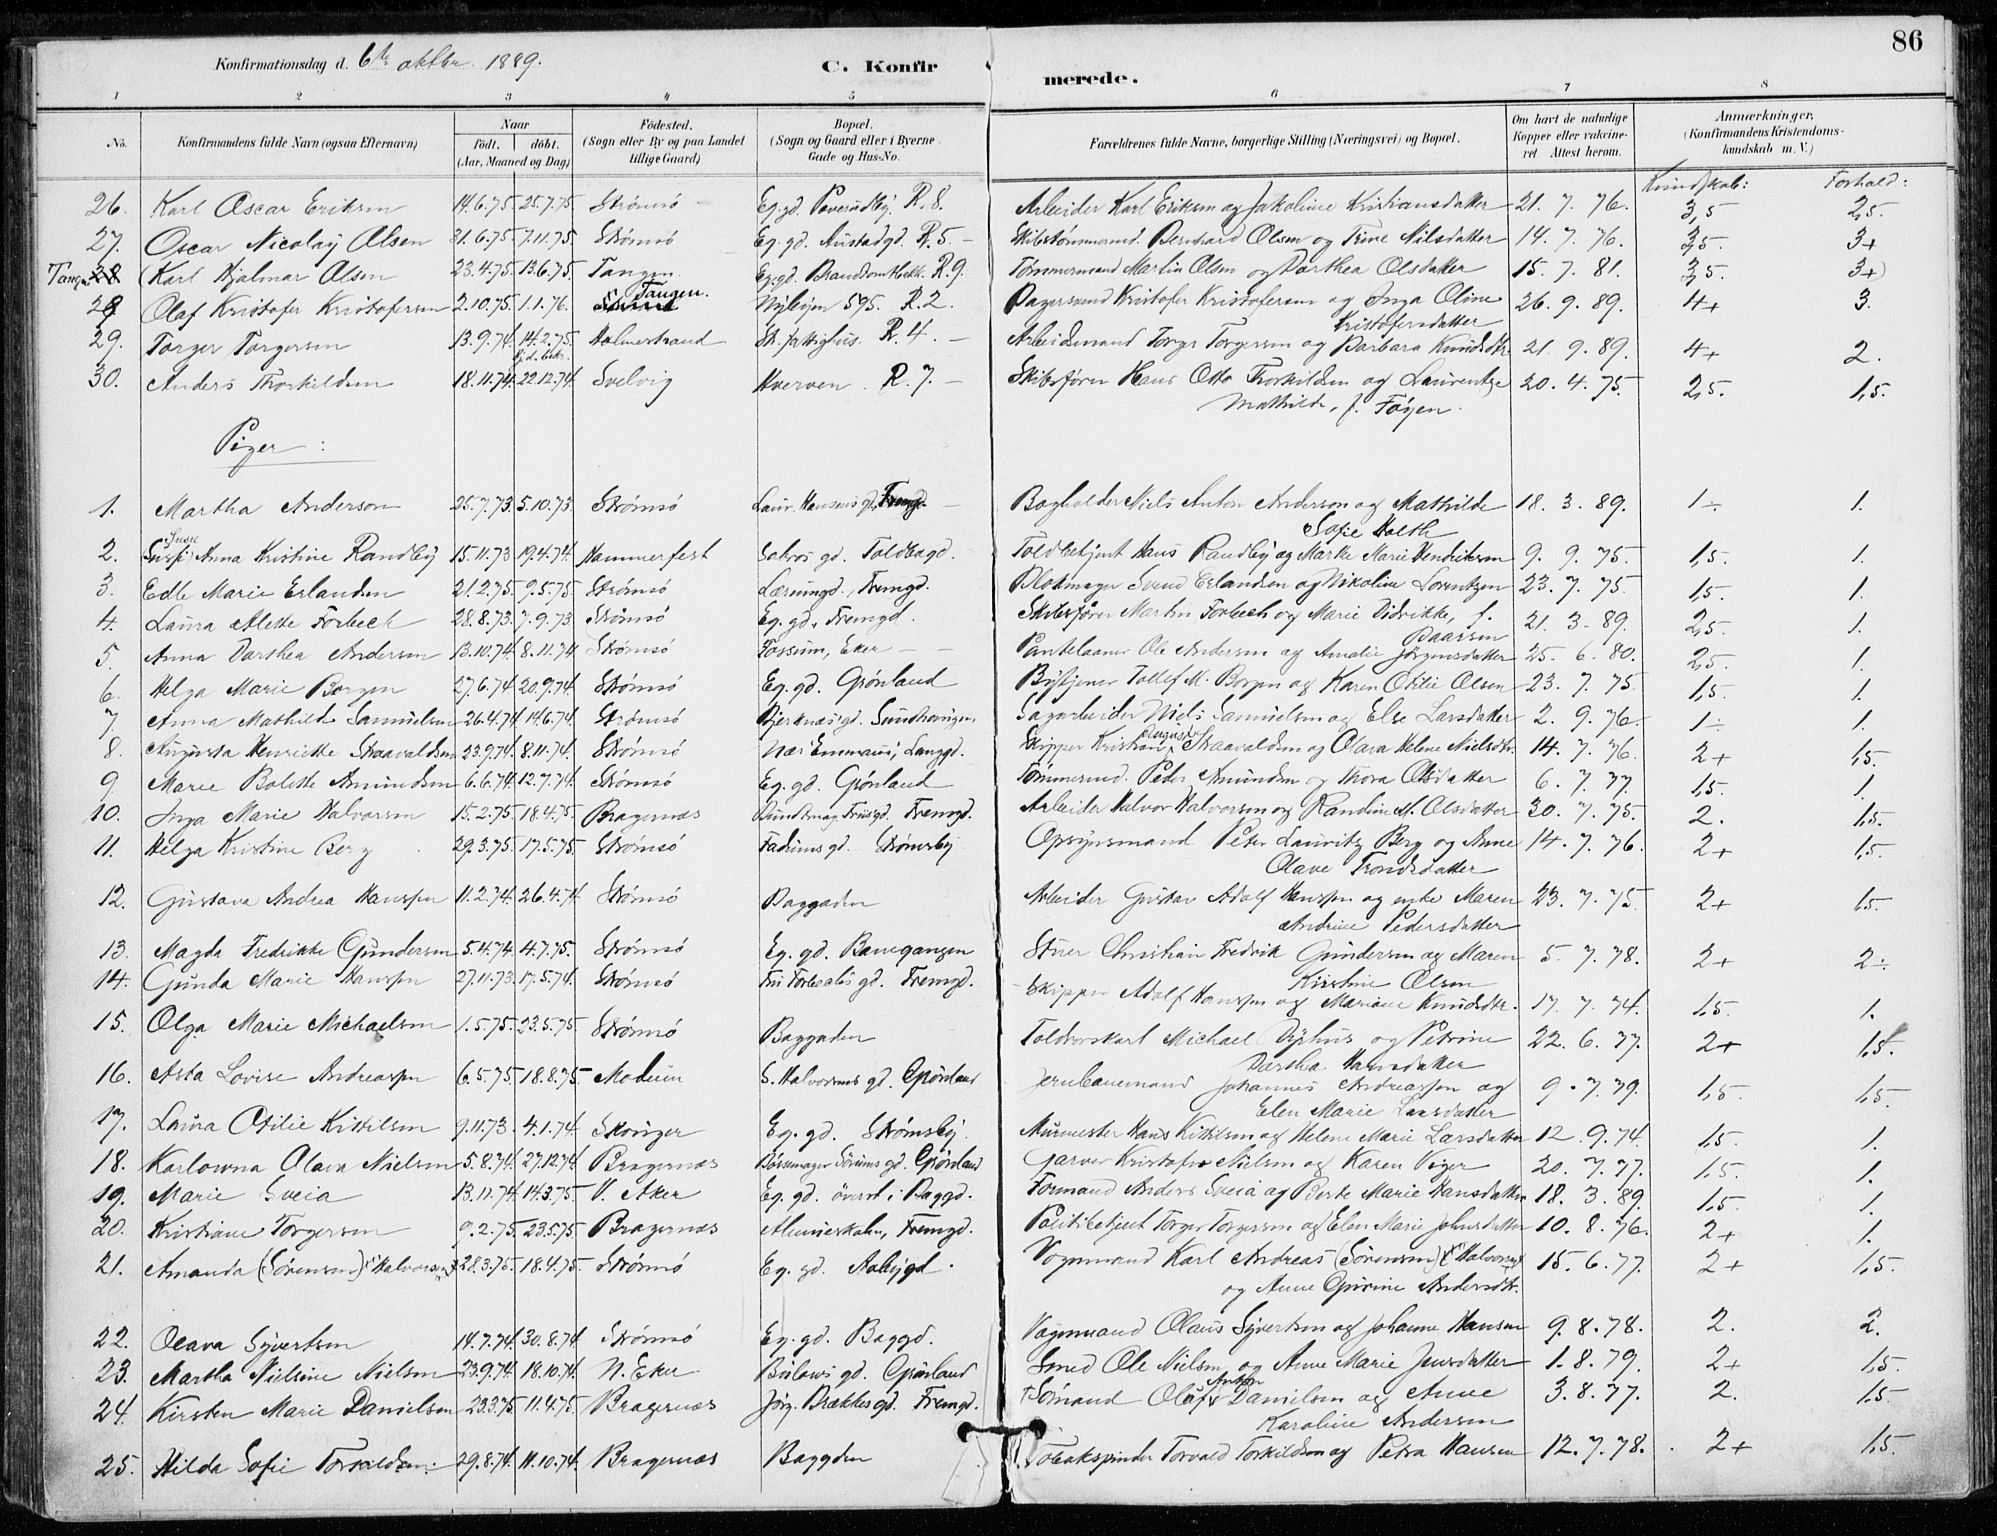 86
Konfirmationsdag d. 6te oktbr. 1889.
C. Konfirmerede.
1 2 3 4 5 6 7 8
No. Konfirmandens fulde Navn (ogsaa Efternavn) Naar født. døbt. (Aar, Maaned og Dag) Fødested. (Sogn eller By og paa Landet tillige Gaard) Bopæl. (Sogn og Gaard eller i Byerne Gade og Hus-No. Forældrenes fulde Navne, borgerlige Stilling (Næringsvei) og Bopæl. Om havt de naturlige Kopper eller vakcineret Attest herom. Anmærkninger, (Konfirmandens Kristendomskundskab m. V.)
Kundskab: Forhold:
26. Karl Oscar Eriksen 14.6.75 25.7.75 Strømsø Eg. gd. R. 8. Arbeider Karl Eriksen og Jakoline Kristiansdatter 21. 7. 76. 3,5 2,5.
27. Oscar Nicolay Olsen 21.6.75 7.11.75. Strømsø Eg. gd. Austadgd. R. 5. Skibstømmermd. Bernhard Olsen og Trine Nilsdatter 14. 7. 76. 3,5. 3+
Tangen 28 (Karl Hjalmar Olsen 23.4.75 13.6.75. Tangen Eg. gd. R. 9. Tømmermand Martin Olsen og Dorthea Olsdatter 15. 7. 81. 3,5. 3+)
28 Olaf Kristofer Kristofersen 2.10.75 1.1.76. Tangen. Nybyen 595. R. 2. Kristofer Kristofersen og Inga Oline 26. 9. 89. 4+ 3.
Kristofersdatter
29. Torger Torgersen 13.9.74 14.2.75. Holmestrand R. 4. Arbeidsmand Torger Torgersen og Barbara Knudsdtr. 21. 9. 89. 4+ 2.
30. Anders Thorkildsen 18.11.74 22.12.74. Svelvig Kverven. R. 7. Skibsfører Hans Otto Thorkildsen og Laurentze 20. 4. 75. 2,5. 1,5.
Mathilde, f. Føyen.
Piger:
1. Martha Anderson 25.7.73. 5.10.73. Strømsø Laur. Hansens gd. Fremgd. Bogholder Niels Anton Anderson og Mathilde 18. 3. 89. 1÷ 1.
Sofie Holth
2. Susie Anna Kristine Randby 15.11.73 19.4.74. Hammerfest Toldbodgd. Toldbetjent Hans Randby og Marthe Marie Hendriksen 9. 9. 75. 1,5. 1.
3. Edle Marie Erlandsen 21.2.75. 9.5.75 Strømsø Fremgd. Blokmager Svend Erlandsen og Nikoline Lorentzen 23. 7. 75. 1,5. 1.
4. Laura Alette Forbech 28.8.73. 7.9.73 Strømsø Eg. gd. Fremgd. Skibsfører Martin Forbech og Marie Didrikke, f. 21. 3. 89. 2,5. 1.
Paarsen
5. Anna Dorthea Andersen 13.10.74. 8.11.74 Strømsø Fossum, Eker Pantelaaner Ole Andersen og Amalie Jørgensdatter 25. 6. 80. 2,5. 1.
6. Helga Marie Borgen 27.6.74 20.9.74. Strømsø Eg. gd. Grønland Bytjener Tollef M. Borgen og Karen Otilie Olsen 23. 7. 75. 1,5. 1.
7. Anna Mathilde Samuelsen 26.4.74 14.6.74. Strømsø Bjerknæs gd. Sundhaugen. Sagarbeider Niels Samuelsen og Else Larsdatter 2. 9. 76. 1÷ 1.
8. Augusta Henriette Staavaldsen 23.9.74 8.11.74. Strømsø Nær Emmaus, Langgd. Skipper Kristian August Staavaldsen og Olava Helene Nielsdtr. 14. 7. 76. 2+ 1,5.
9. Marie Bolette Amundsen 6.6.74 12.7.74. Strømsø Eg. gd. Grønland Tømmermd. Peder Amundsen og Thora Olsdatter 6. 7. 77. 1,5. 1.
10. Inga Marie Halvorsen 15.2.75 18.4.75. Bragernæs Fremgd. Arbeider Halvor Halvorsen og Randine M. Olsdatter 30. 7. 75. 2. 1,5.
11. Helga Kristine Berg 29.3.75. 17.5.75. Strømsø Fadums gd. Strømsby Opsynsmand Peter Lauritz Berg og Anne 14. 7. 76. 2+ 1,5.
Olave Trondsdatter
12. Gustava Andrea Hanssen 11.2.74. 26.4.74 Strømsø Baggaden Arbeider Gustav Adolf Hanssen og enke Maren 23. 7. 75. 2+ 1,5.
Andrine Pedersdatter
13. Magda Fredrikke Gundersen 5.4.74 4.7.75. Strømsø Eg. gd. Banegangen Stuer Christian Fredrik Gundersen og Maren 5. 7. 78. 2+ 2÷
Kirstine Olsen
14. Gunda Marie Hanssen 27.11.73. 17.5.74. Strømsø Fru Forbechs gd. Fremgd. Skipper Adolf Hanssen og Mariane Knudsdtr. 17. 7. 74. 1,5. 1.
15. Olga Marie Michaelsen 1.5.75. 23.5.75. Strømsø Baggaden Toldrorskarl Michael Dyhus og Petrine 22. 6. 77. 2+ 1,5.
Dorthea Hansdatter
16. Asta Lovise Andreassen 6.5.75 18.8.75 Modum S. Halvorsens gd. Grønland Jernbanemand Johannes Andreassen og 9. 7. 79. 1,5. 1,5.
Elen Marie Larsdatter
17. Laura Otilie Kittilsen 9.11.73. 4.1.74. Skouger Eg. gd. Strømsby Murmester Hans Kittilsen og Helene Marie Larsdatter 12. 9. 74. 1,5. 1.
18. Karlowna Olava Nielsen 5.8.74. 27.12.74 Bragernæs Børsemager Sørums gd. Grønland Garver Kristofer Nielsen og Karen Viger 20. 7. 77. 1,5. 1.
19. Marie Sveia 13.11.74 14.3.75. V. Aker Eg. gd. øverst i Baggd. Formand Anders Sveia og Berte Marie Hansdatter 18. 3. 89. 1,5. 1.
20. Kristiane Torgersen 9.2.75. 23.5.75. Bragernæs Almueskolen, Fremgd. Politibetjent Torger Torgersen og Elen Marie Johnsdatter 10. 8. 76. 2+ 1.
21. Amanda (Sørensen) "Halvorsen" 28.3.75. 18.4.75. Strømsø Eg. gd. Aabygd. Vognmand Karl Andreas (Sørensen) "Halvorsen" 15. 6. 77. 2+ 1,5.
og Anne Gurine Andersdtr.
22. Olava Syvertsen 14.7.74. 30.8.74. Strømsø Eg. gd. Baggd. Vognmand Olaus Syvertsen og Johanne Hansen 9. 8. 78. 2. 2.
23. Martha Nielsine Nielsen 23.9.74 18.10.74. N. Eker Bülows gd. Grønland Smed Ole Nielsen og Anne Marie Jensdatter 1. 8. 79. 2+ 1,5.
24. Kirsten Marie Danielsen 23.3.75 11.4.75. Bragernæs Jørg. Brækkes gd. Fremgd. Sømand Olaf Anton Danielsen og Anne 3. 8. 77. 2. 1,5.
Karoline Andersen
25. Hilda Sofie Torvaldsen. 29.8.74. 11.10.74. Bragernæs Baggden Tobakspinder Torvald Torkildsen og Petra Hansen 12. 7. 78. 2+ 1,5.